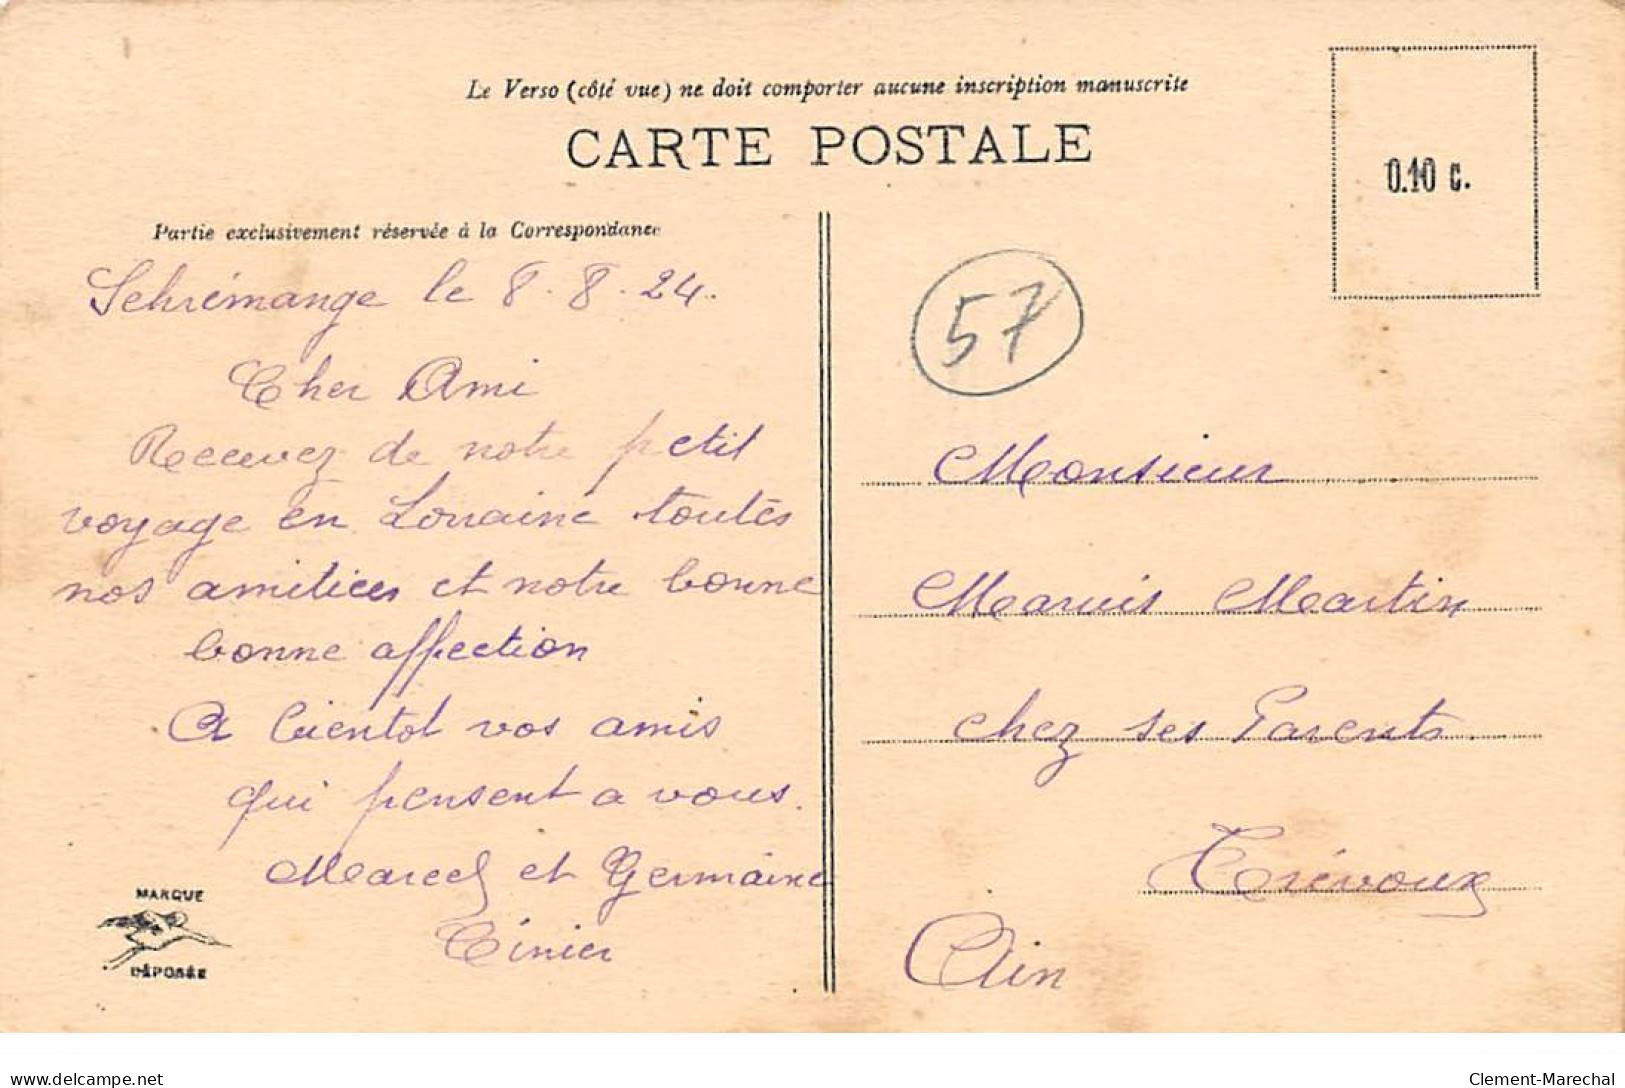 Le Verso (côté vue) ne doit comporter aucune inscription manuscrite
CARTE POSTALE
0.10 c.
Partie exclusivement réservée à la Correspondance
Sehrémange le 8.8.24.
57
Cher Ami
Recevez de notre petit
voyage en Lorraine toutes
nos amitiées et notre bonne
bonne affection
A bientot vos amis
qui pensent a vous.
Marcel et Germaine
Tinier
MARQUE
DÉPOSÉE
Monsieur
Marius Martin
chez ses Parents.
Trévoux
Ain
delcampe.net
Clement-Marechal